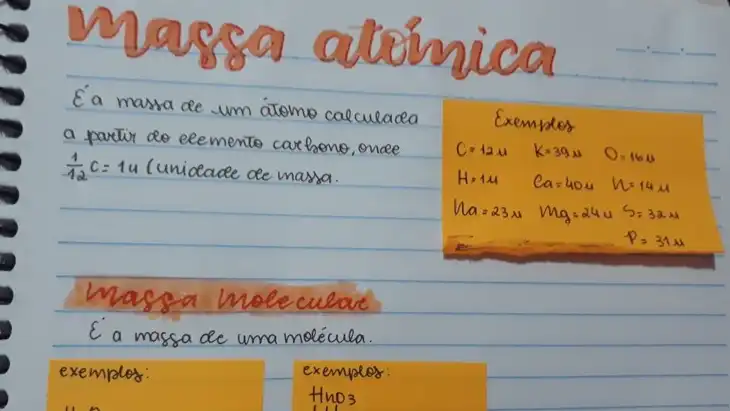 massa atômica
É a massa de um átomo calculada
a partir do elemento carbono, onde
1/12 C = 1u (unidade de massa.
Exemplos
C = 12u K = 39u O = 16u
H = 1u Ca = 40u N = 14u
Na = 23u Mg = 24u S = 32u
P = 31u
massa molecular
É a massa de uma molécula.
exemplos:
exemplos:
HNO3